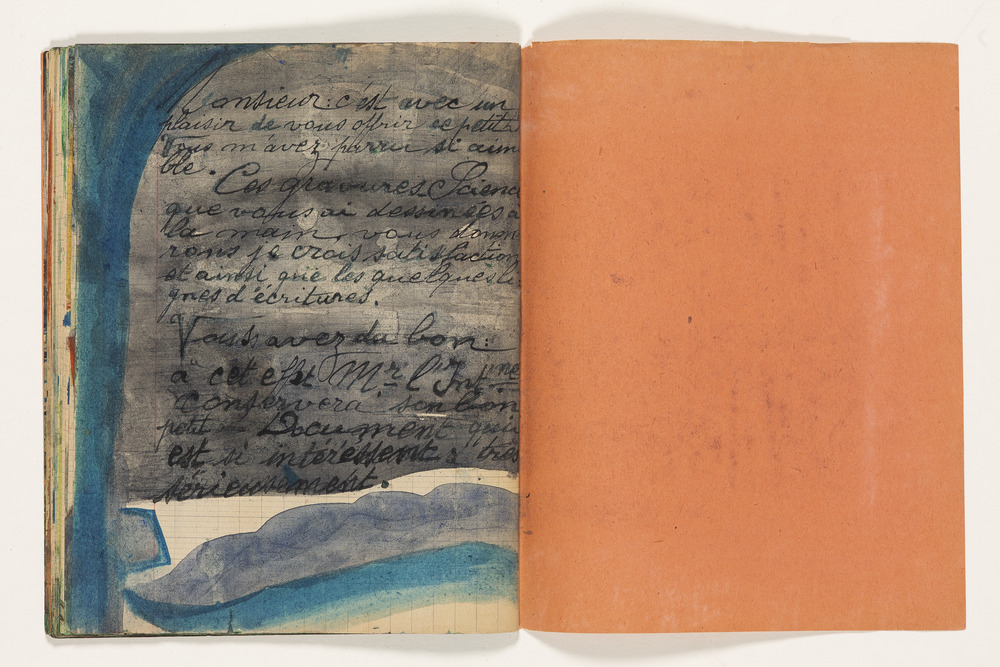 Monsieur: c'est avec un
plaisir de vous offrir ce petit
Vous m'avez parru si aim
ble.
Ces gravures Scienc
que vous ai dessinées a
la main, vous donn
rons je crois satisfaction
et ainsi que les quelques li
gnes d'écritures.
Vous avez du bon:
à cet effet Mr l'Intne
conservera son bon
petit Document qui
est si intéressent, très
sérieusement.